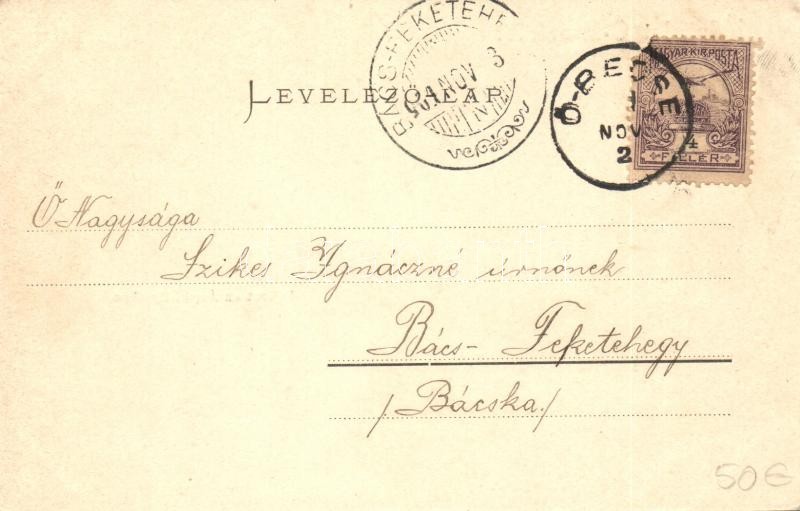 BÁCS-FEKETEHE
901 NOV 3
LEVELEZŐ-LAP
Ó-BECSE
NOV
2
MAGYAR KIR. POSTA
4
FILLÉR
Ő Nagysága
Szikes Ignáczné úrnőnek
Bács-Feketehegy
/Bácska./
50€